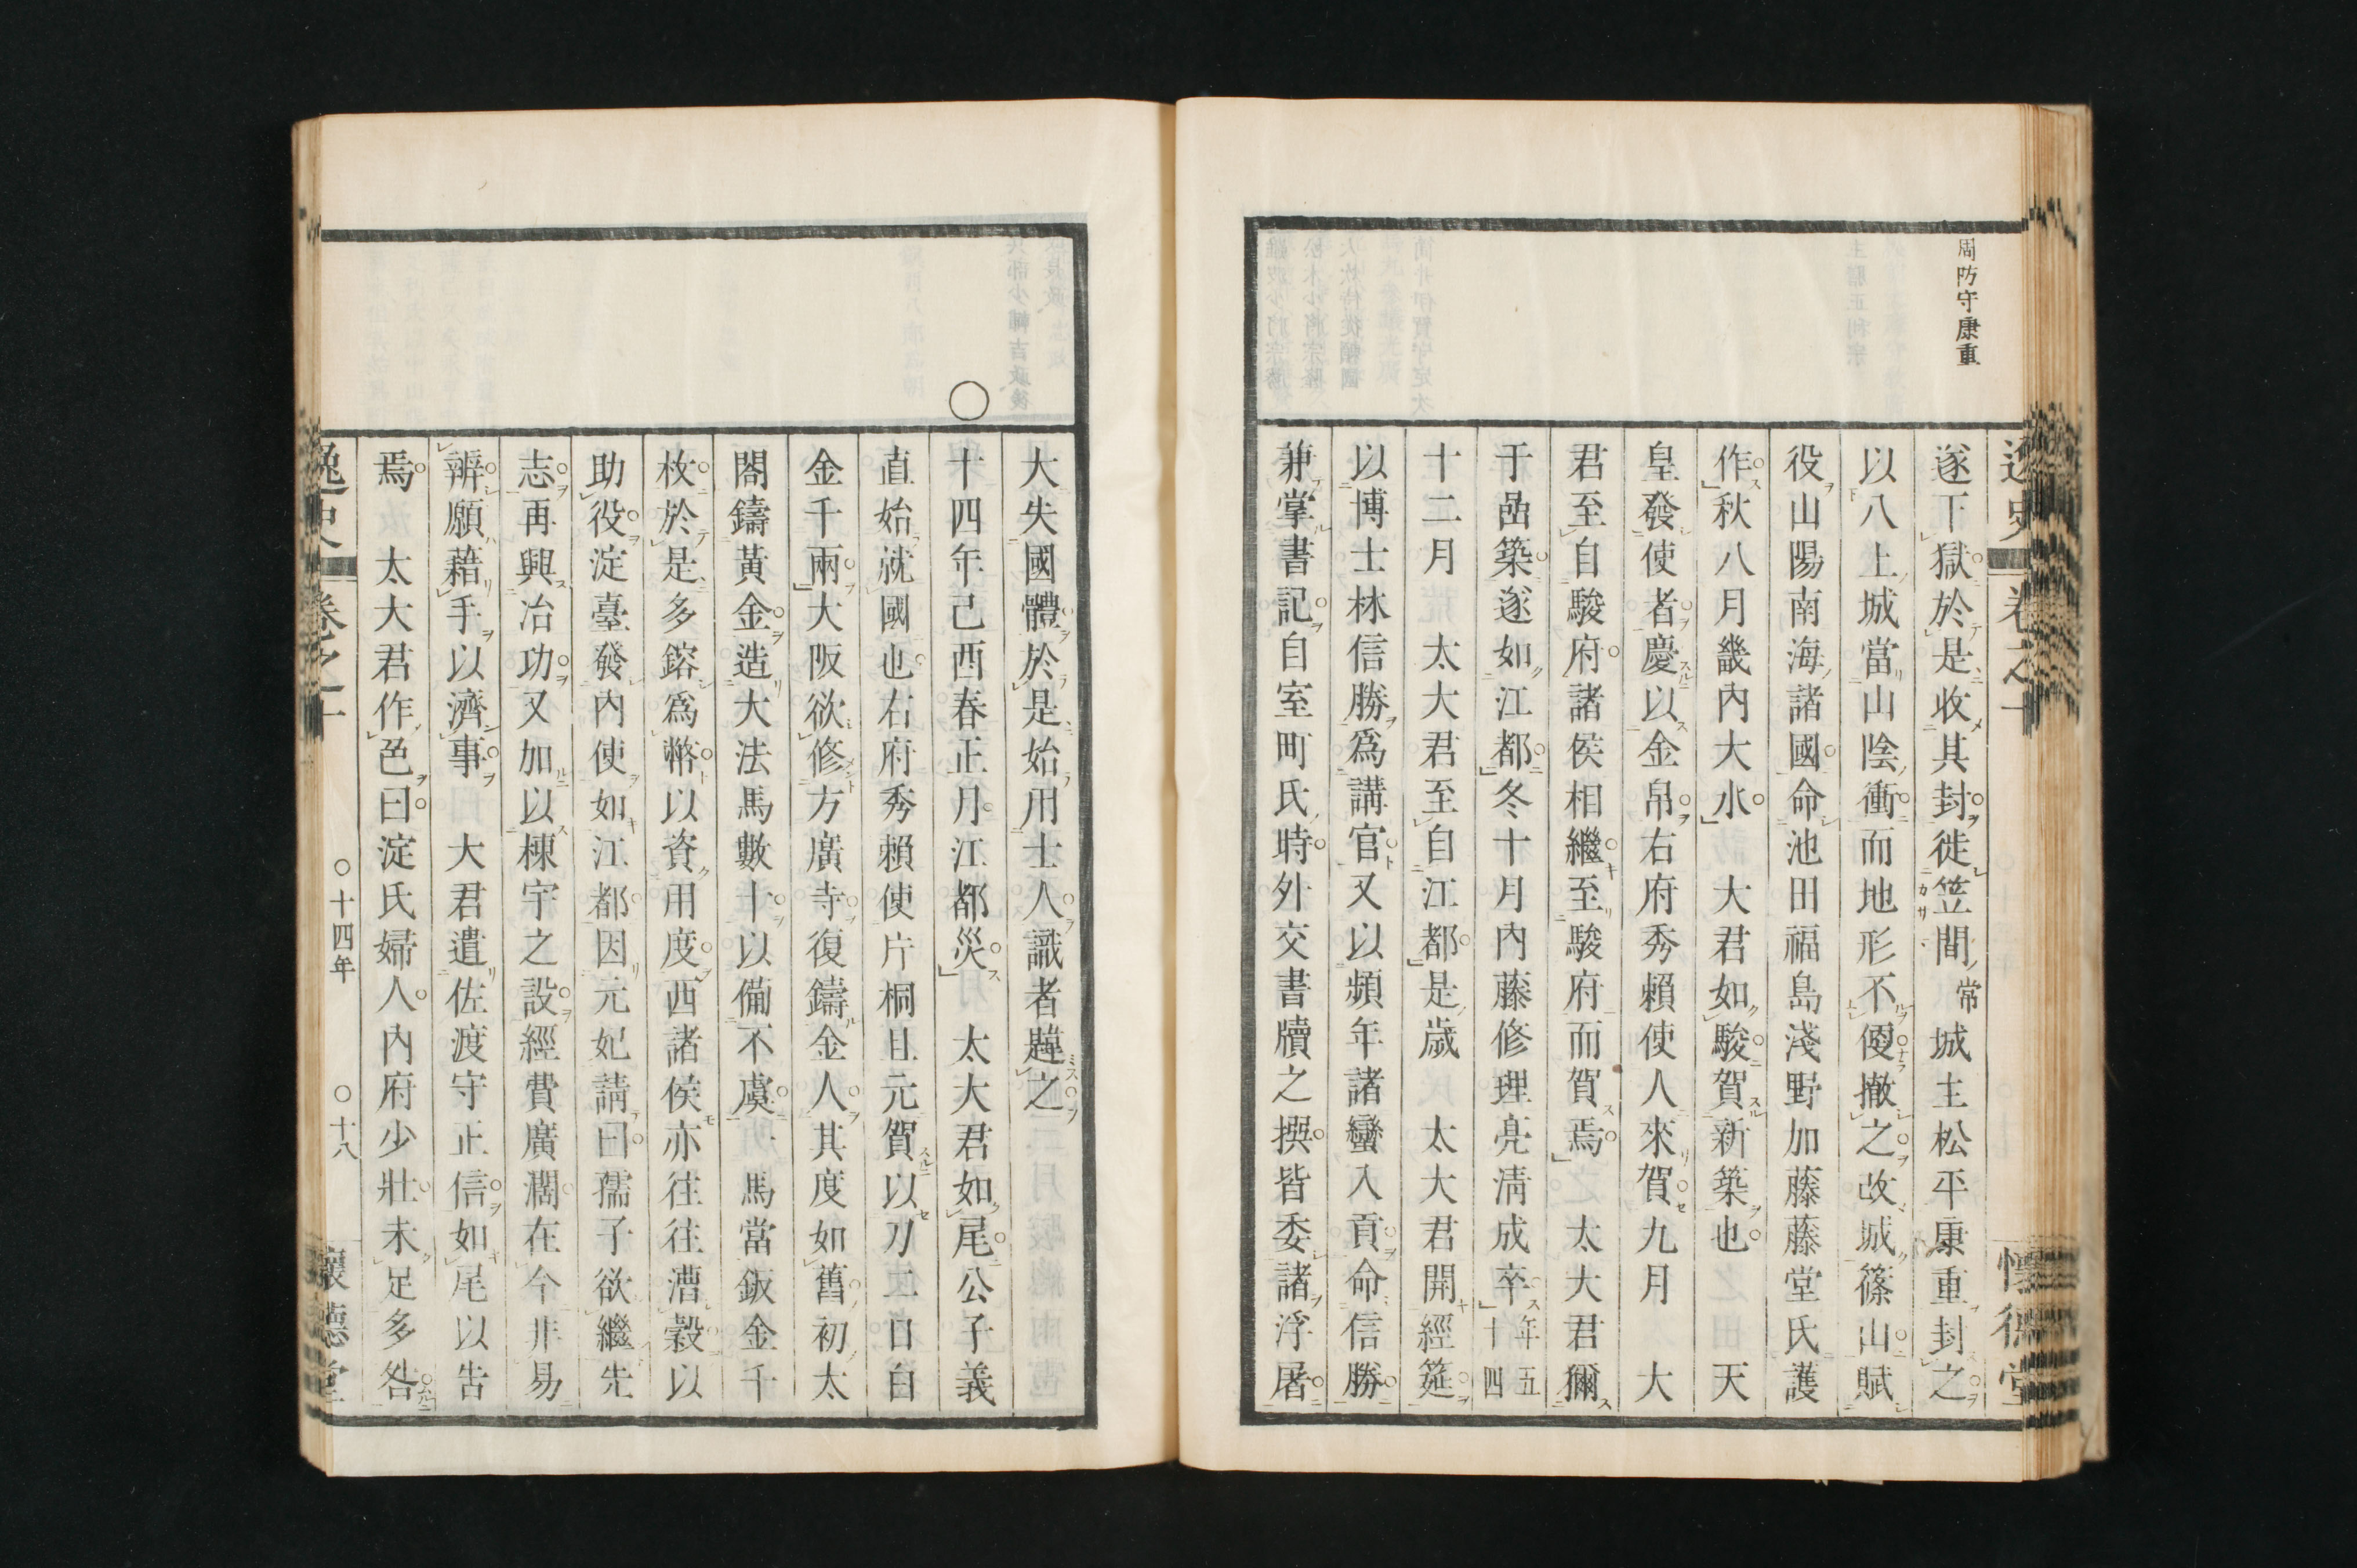 周防守康重
遂下獄於是收其封徙笠間常城主松平康重封之
以八上城當山陰衝而地形不優撤之改城篠山賦
役山陽南海諸國命池田福島淺野加藤藤堂氏護
作秋八月畿内大水　大君如駿賀新築也　天
皇發使者慶以金帛右府秀賴使人來賀九月　大
君至自駿府諸侯相繼至駿府而賀焉　太大君爾
于嵒築遂如江都冬十月内藤修理亮清成卒年五十四
十二月　太大君至自江都是歲　太大君開經筵
以博士林信勝爲講官又以頻年諸蠻入貢命信勝
兼掌書記自室町氏時外交書牘之撰皆委諸浮屠
大失國體於是始用士人識者韙之
○
十四年己酉春正月江都災　太大君如尾公子義
直始就國也右府秀賴使片桐且元賀以刀工者白
金千兩大阪欲修方廣寺復鑄金人其度如舊初太
閤鑄黃金造大法馬數十以備不虞　馬當鈑金千
枚於是多鎔爲幣以資用度西諸侯亦往往漕穀以
助役淀臺發内使如江都因元妃請曰孺子欲繼先
志再興冶功又加以棟宇之設經費廣濶在今非易
辨願藉手以濟事　大君遣佐渡守正信如尾以告
焉　太大君作色曰淀氏婦人内府少壯未足多咎
逸史　卷之十　○十四年　○十八　懷德堂